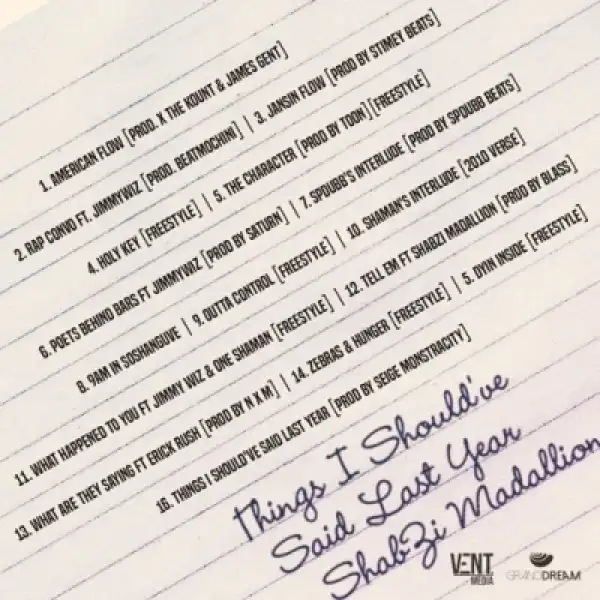 1. AMERICAN FLOW [PROD. X THE KOUNT & JAMES GENT]
2. RAP CONVO FT. JIMMYWIZ [PROD. BEATMOCHINI] | 3. JANSIN FLOW [PROD BY STIMEY BEATS]
4. HOLY KEY [FREESTYLE] | 5. THE CHARACTER [PROD BY TOON] [FREESTYLE]
6. POETS BEHIND BARS FT JIMMYWIZ [PROD BY SATURN] | 7. SPDUBB'S INTERLUDE [PROD BY SPDUBB BEATS]
8. 9AM IN SOSHANGUVE | 9. OUTTA CONTROL [FREESTYLE] | 10. SHAMAN'S INTERLUDE [2010 VERSE]
11. WHAT HAPPENED TO YOU FT JIMMY WIZ & ONE SHAMAN [FREESTYLE] | 12. TELL EM FT SHABZI MADALLION [PROD BY BLASS]
13. WHAT ARE THEY SAYING FT ERICK RUSH [PROD BY N X M] | 14. ZEBRAS & HUNGER [FREESTYLE] | 5. DYIN INSIDE [FREESTYLE]
16. THINGS I SHOULD'VE SAID LAST YEAR [PROD BY SEIGE MONSTRACITY]
Things I Should've
Said Last Year
ShabZi Madallion
VENT.
MEDIA
GRANDDREAM